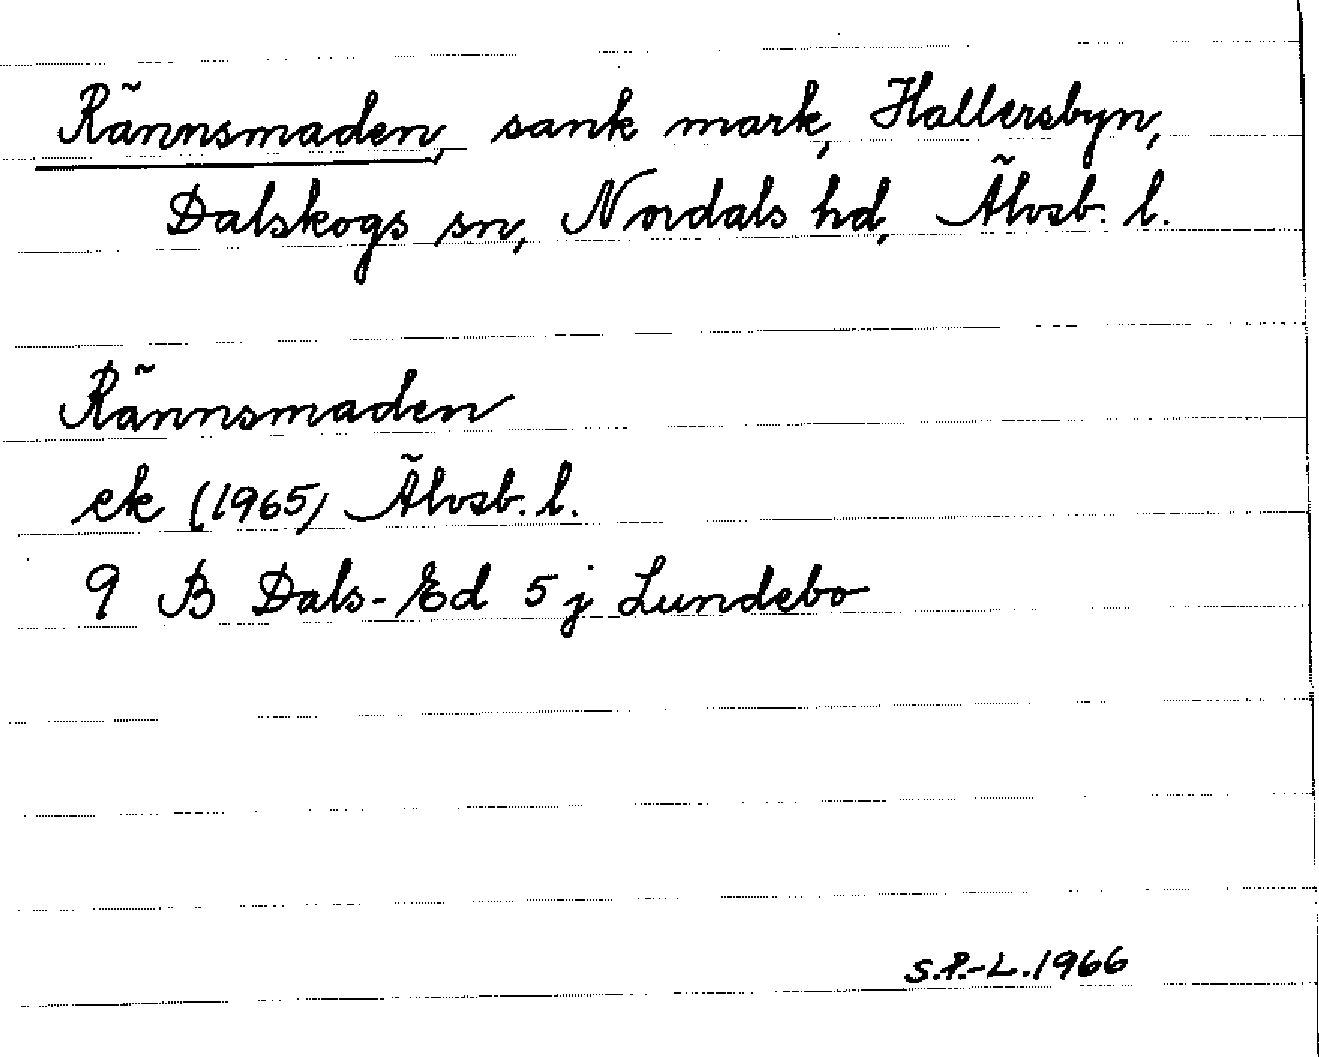 Rännsmaden, sank mark, Hallersbyn,
Dalskogs sn, Nordals hd, Älvsb. l.
Rännsmaden
ek (1965) Älvsb. l.
9 B Dals-Ed 5 j Lundebo
S.P.-L. 1966